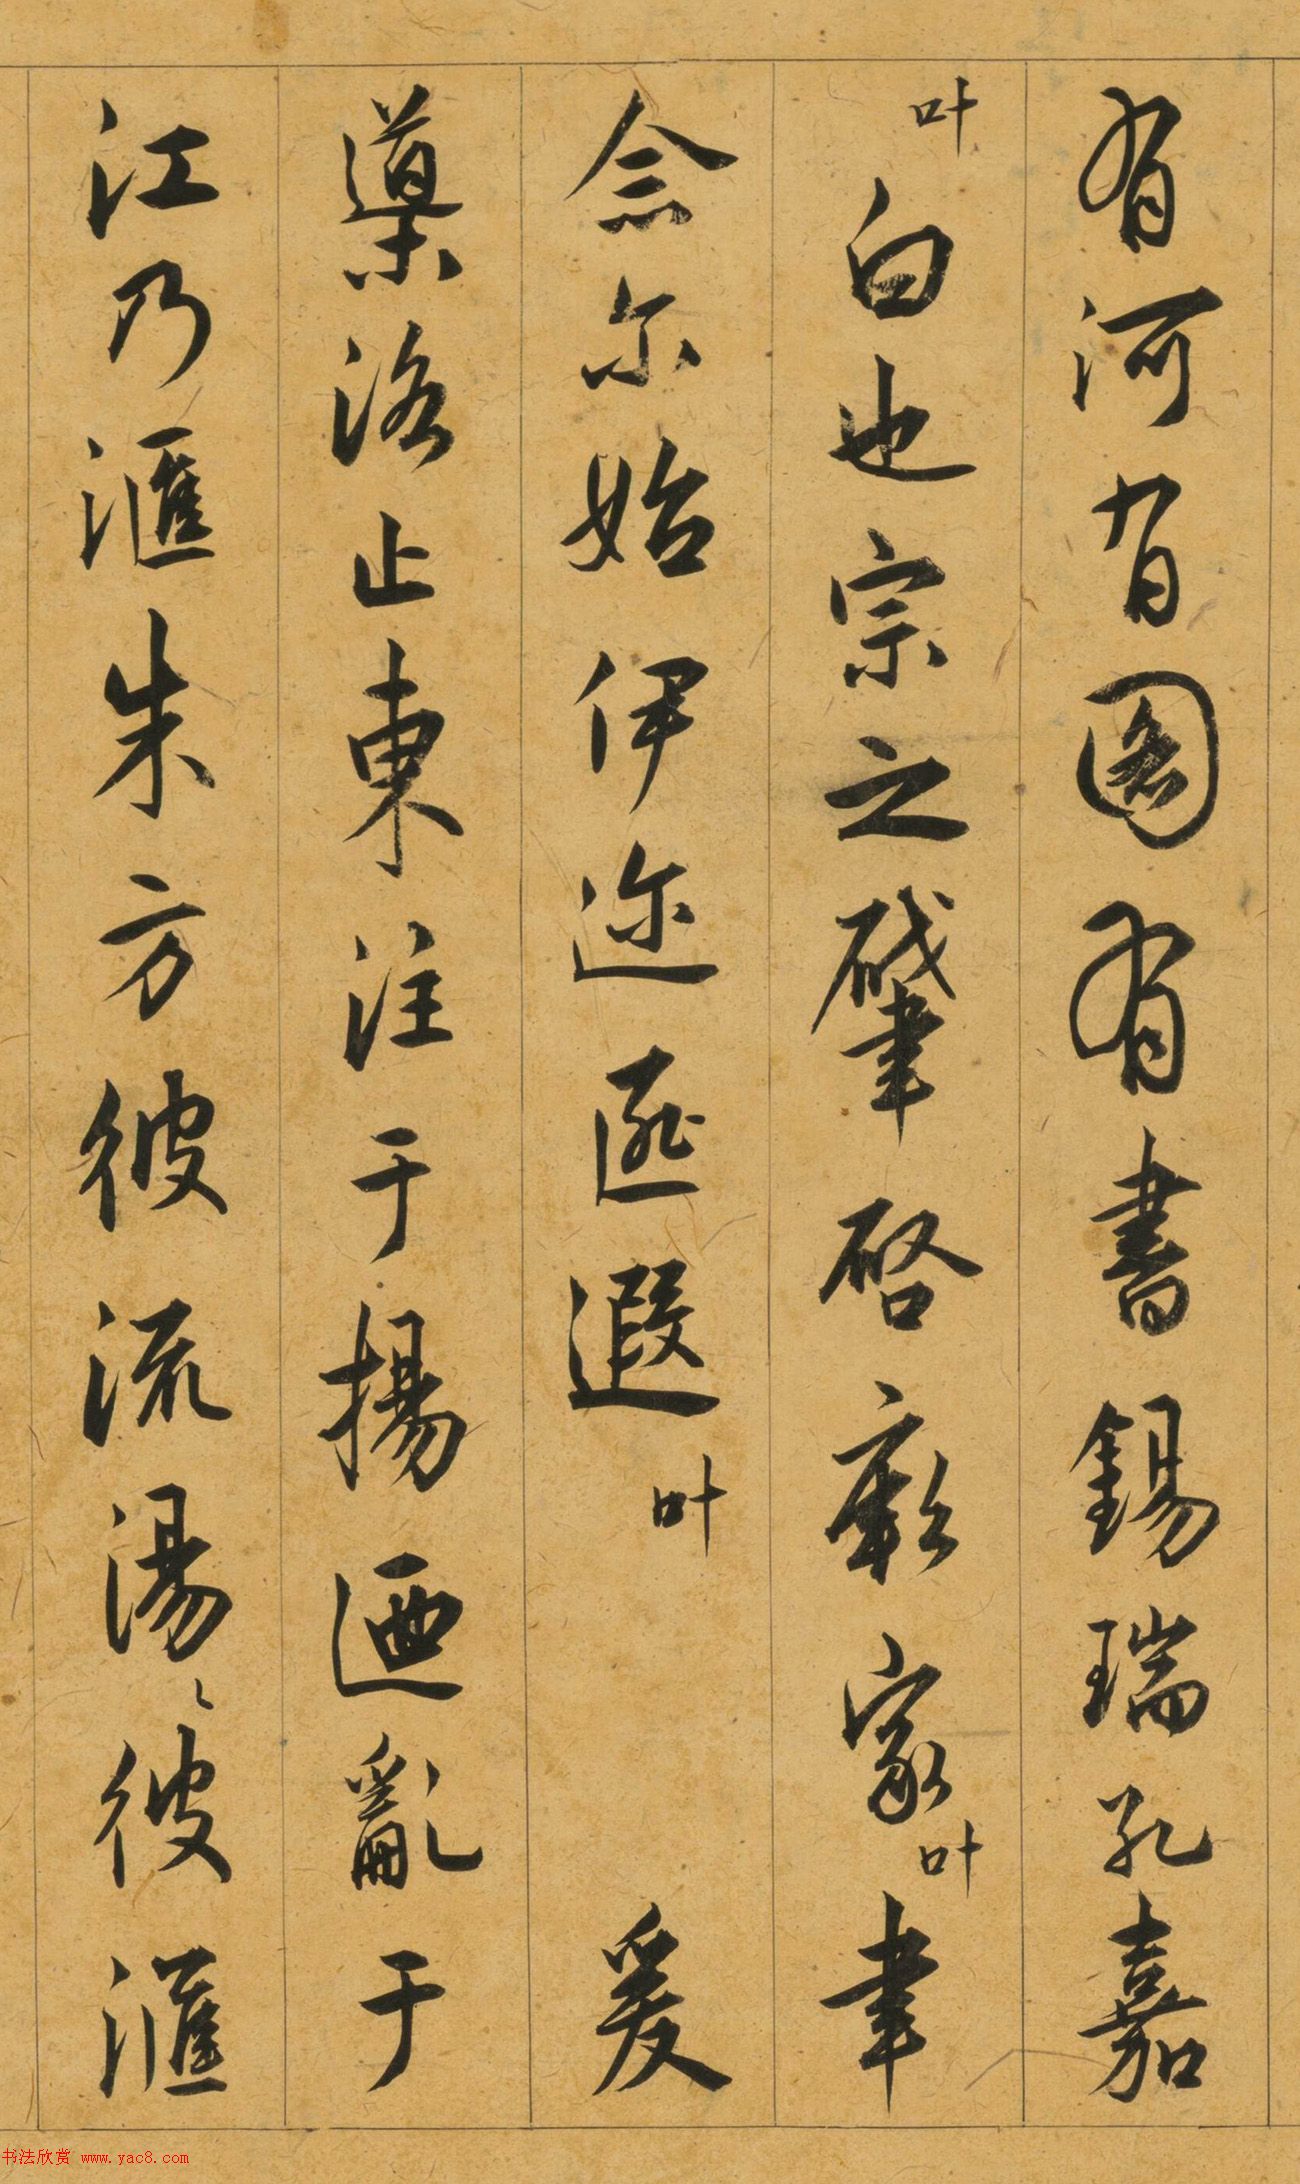 有河有圖有書錫瑞孔嘉
叶白也宗之肇啓厥家叶聿
念尔始伊迩匪遐叶爰
導洛止東注于揚迺亂于
江乃滙朱方彼流湯〻彼滙
书法欣赏 www.yac8.com